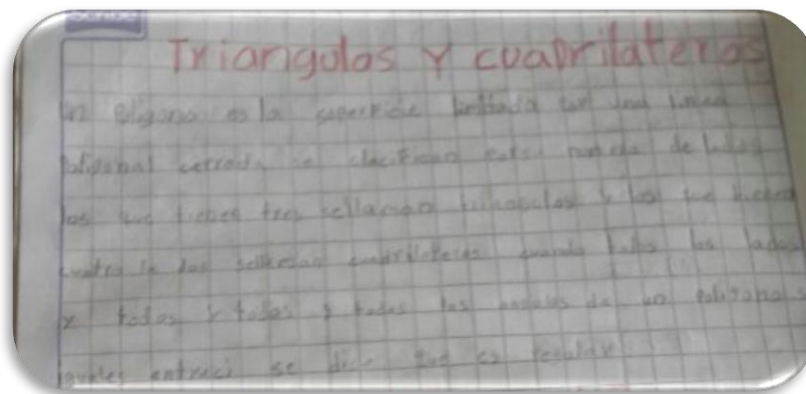 Scribe
Triangulos Y cuadrilateros
un poligono es la superficie limitada por una linea
poligonal cerrada se clacifican por su numero de lados
los que tienen tres sellaman triangulos y los que tienen
cuatro la dos sellaman cuadrilateros cuando todos los lados
y todos y todos y todos los angulos de un poligono
iguales entreci se dice que es regular